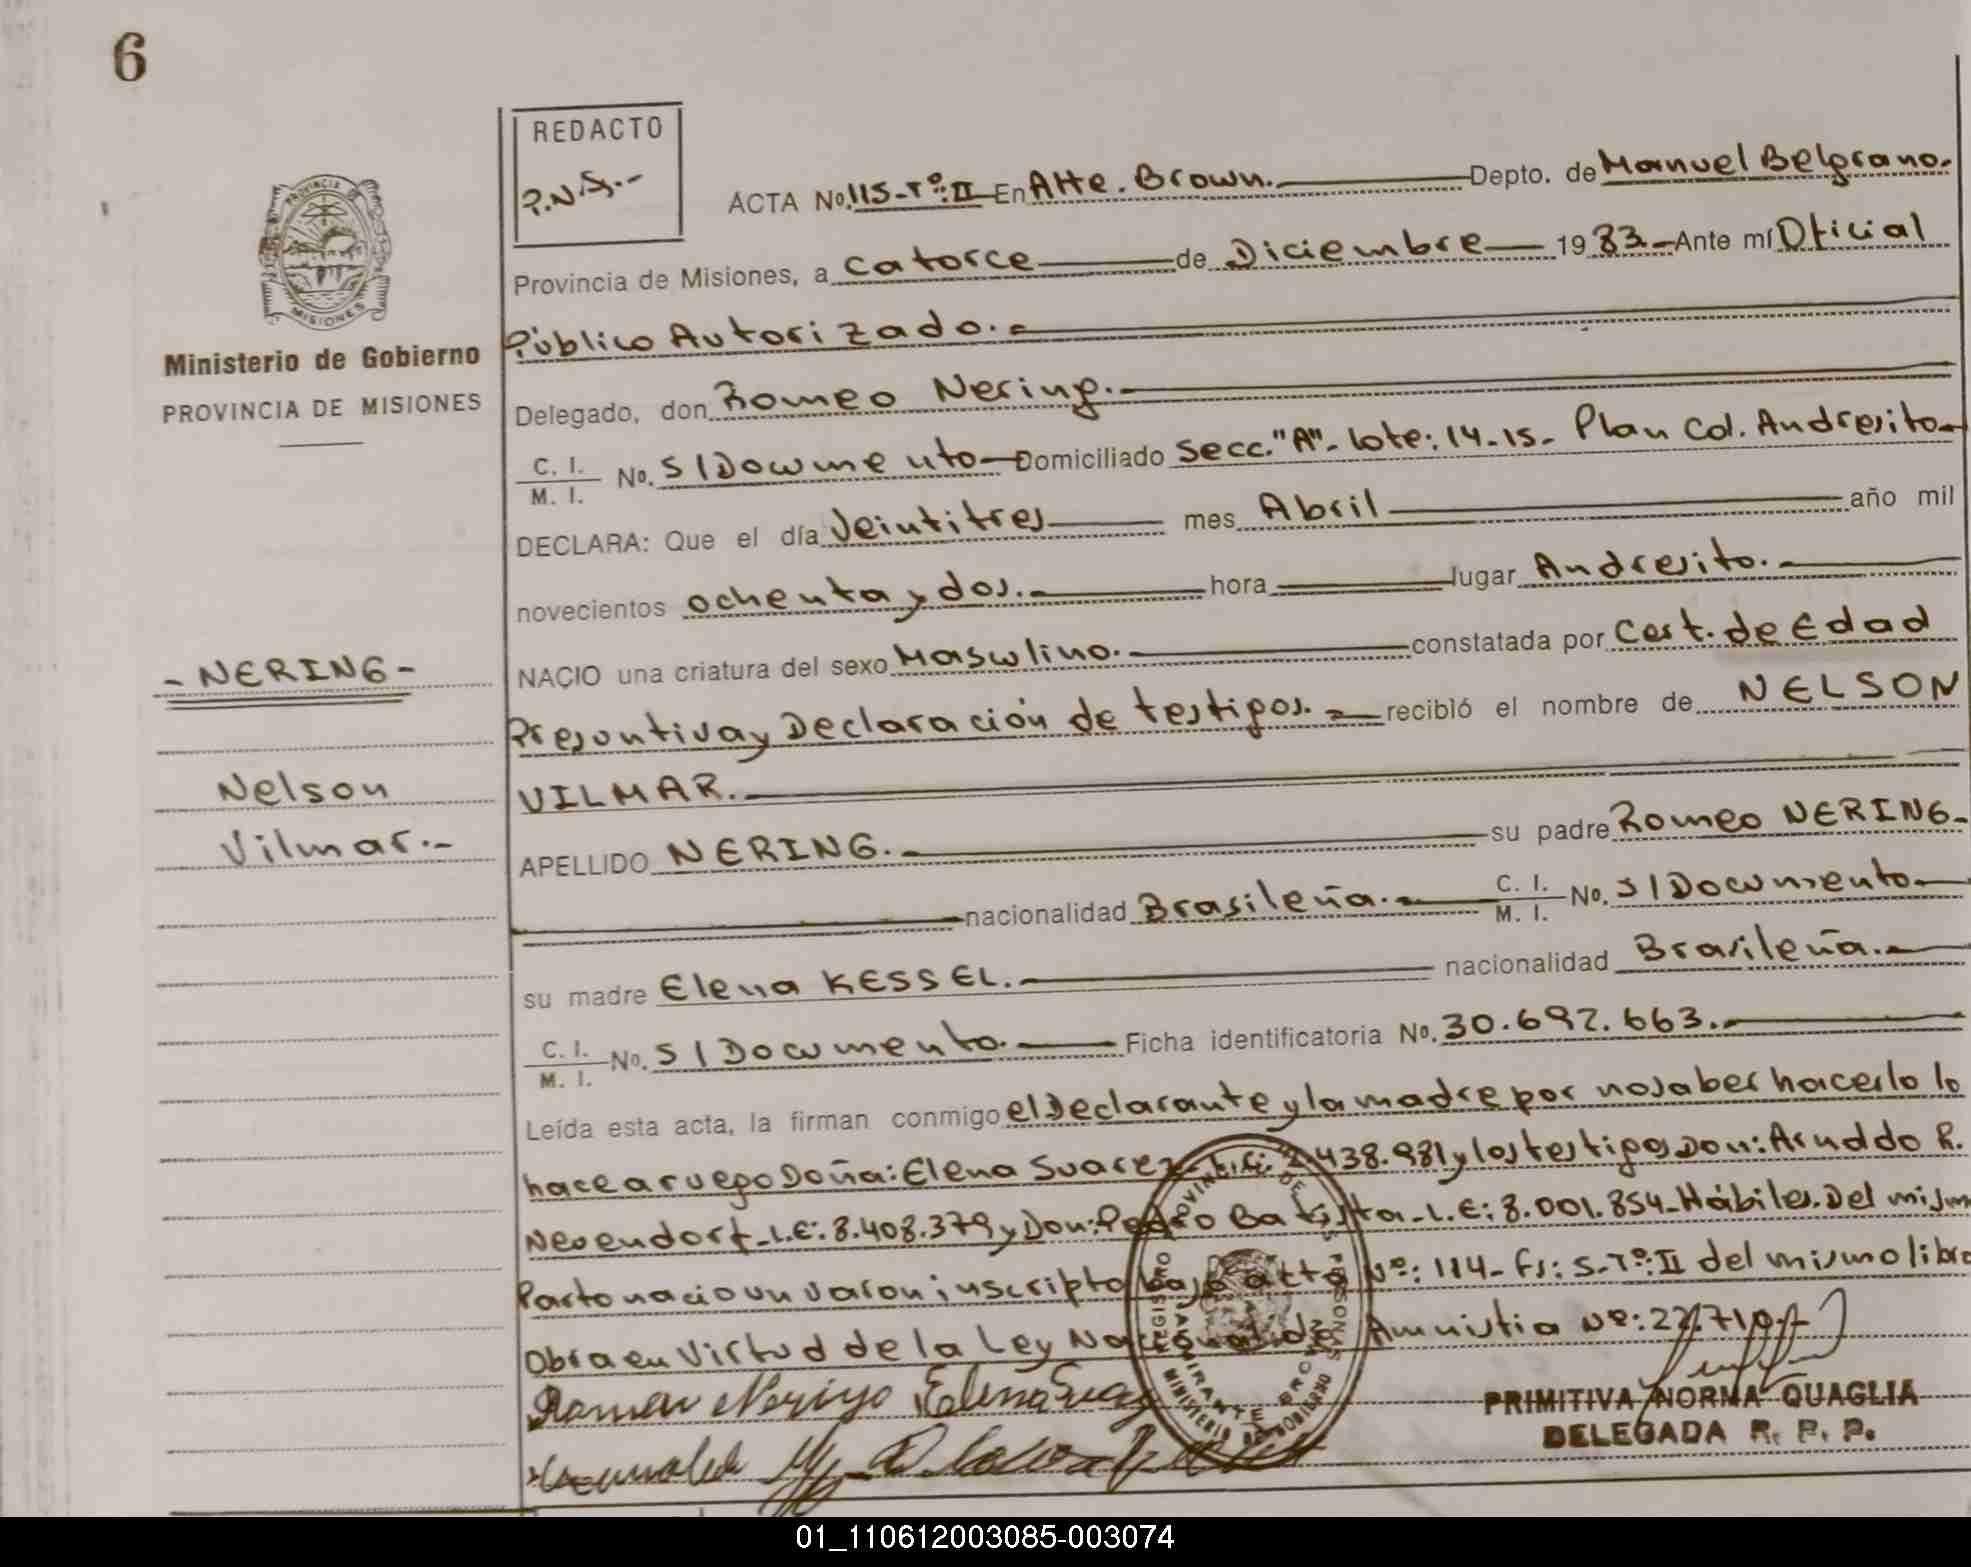 6
REDACTO
P.N.S.-
ACTA No. 115-Tº:II En Atte. Brown. Depto. de Manuel Belgrano.
Provincia de Misiones, a Catorce de Diciembre 1983.- Ante mí Oficial
Público Autorizado.-
PROVINCIA DE MISIONES
Ministerio de Gobierno
PROVINCIA DE MISIONES
Delegado, don Romeo Nering.-
C. I. / M. I. No. S/Documento Domiciliado Secc. "A"- lote: 14-15- Plan Col. Andresito-
DECLARA: Que el día Veintitres mes Abril año mil
novecientos ochenta y dos.- hora lugar Andresito.-
NACIO una criatura del sexo Masculino.- constatada por Cert. de Edad
Presuntiva y Declaración de testigos.- recibió el nombre de NELSON
VILMAR.-
- NERING -
Nelson
Vilmar.-
APELLIDO NERING.- su padre Romeo NERING-
nacionalidad Brasileña.- C. I. / M. I. No. S/Documento-
su madre Elena KESSEL.- nacionalidad Brasileña.-
C. I. / M. I. No. S/Documento.- Ficha identificatoria No. 30.692.663.-
Leída esta acta, la firman conmigo el Declarante y la madre por no saber hacerlo lo
hace a ruego Doña: Elena Suarez- 2.438.981 y los testigos Don: R.
L.E: 8.408.379 y Don: Pedro Batista- L.E: 8.001.854- Hábiles. Del mismo
Parto nacio un varon inscripto bajo acta Nº: 114- Fs: 5-Tº:II del mismo libro
Obra en Virtud de la Ley Nacional de Amnistia Nº: 22.710.-
PRIMITIVA NORMA QUAGLIA
DELEGADA R. P. P.
01_110612003085-003074